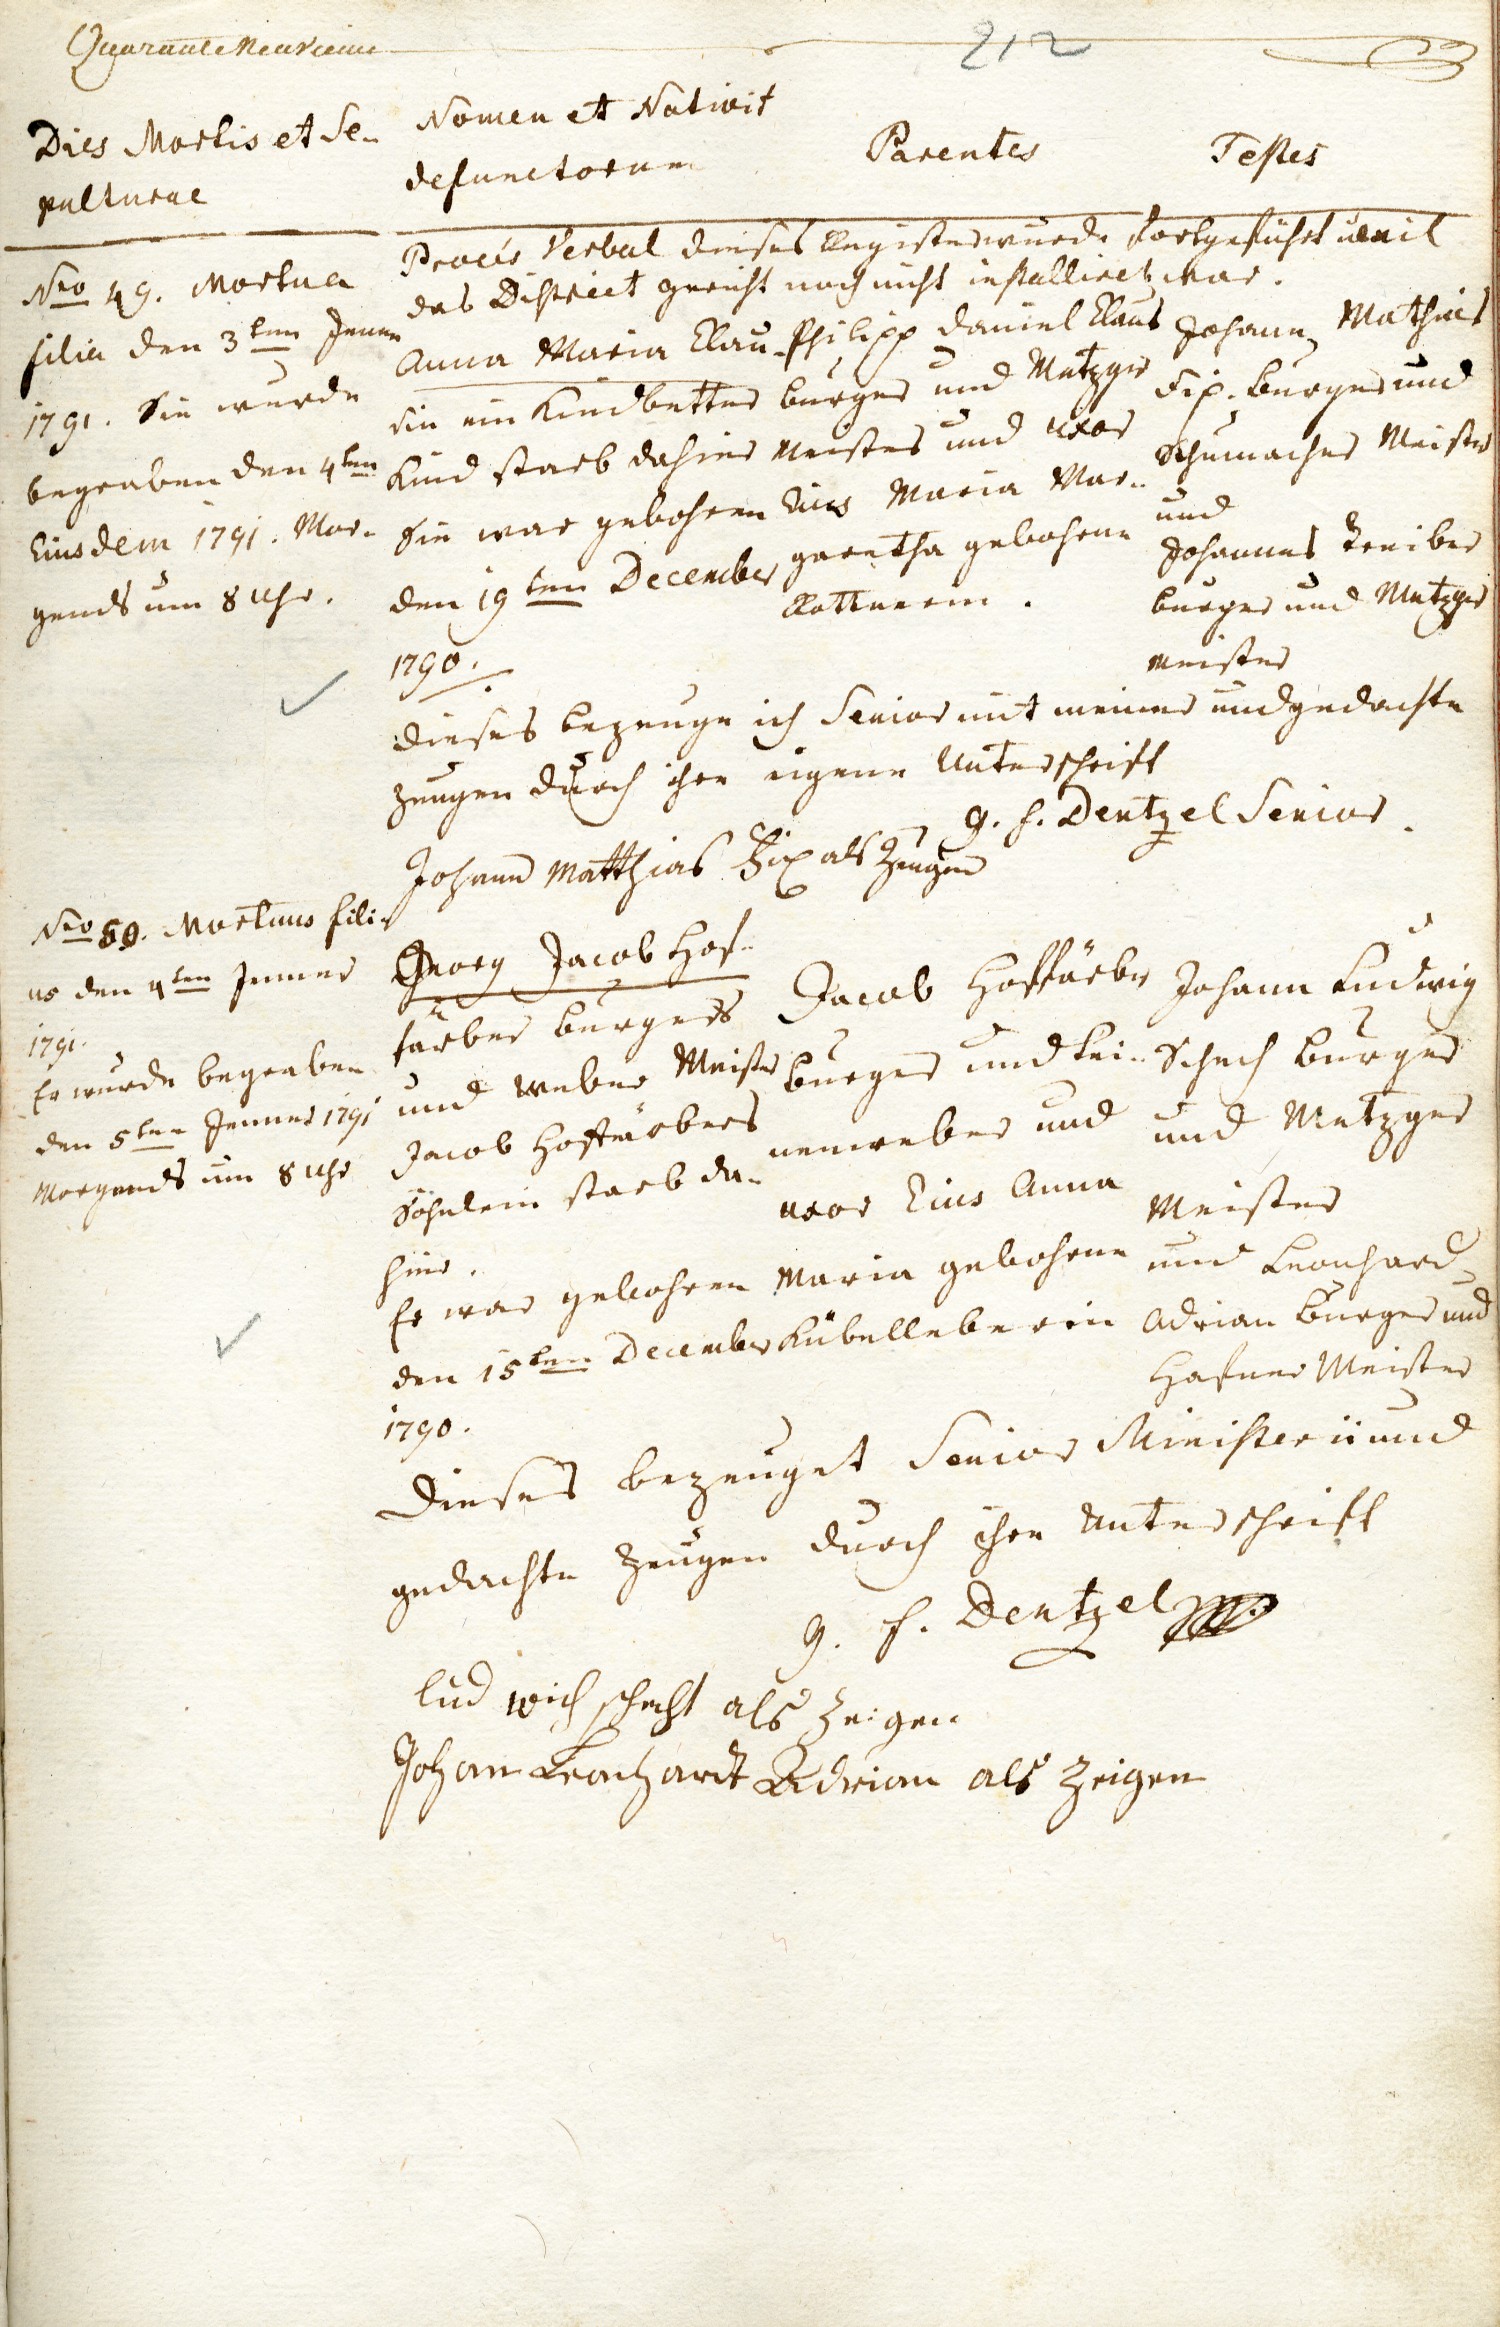 Quarante Neuvieme
212
Dies Mortis et Se-
pulturae
Nomen et Nativit
defunctorum
Parentes
Testes
Procés Verbal dieses Register wurde fortgeführt weil
das District gericht noch nicht installiret war.
Nro 49. Mortua
filia den 3ten Jenner
1791. Sie wurde
begraben den 4ten
Eiusdem 1791. Mor-
gends um 8 Uhr.
Anna Maria Clau-
sin ein Kindbetter
Kind starb dahier
Sie war gebohren
den 19ten December
1790.
Philipp Daniel Claus
burger und Metzger
Meister und uxor
Eius Maria Mar-
garetha gebohrne
Johann Mathias
Fix. burger und
Schumacher Meister
und
Johannes Treiber
burger und Metzger
Meister
Dieses bezeuge ich Senior mit meiner und gedachte
Zeugen durch ihre eigene Unterschrift
G. F. Dentzel Senior.
Johann Matthias Fix als Zeugen
Nro 50. Mortuus fili-
us den 4ten Jenner
1791.
Er wurde begraben
den 5ten Jenner 1791
Morgends um 8 Uhr
Georg Jacob Hof-
färber burgers
und weber Meister
Jacob Hoffärbers
Söhnlein starb da-
hier.
Er war gebohren
den 15ten December
1790.
Jacob Hoffärber
burger und Lei-
nenweber und
uxor Eius Anna
Maria gebohrne
Kübelleberin
Johann Ludwig
Schech burger
und Metzger
Meister
und Leonhard
Adrian burger und
Hafner Meister
Dieses bezeuget Senior Ministerii und
gedachte Zeugen durch ihre Unterschrift
G. F. Dentzel
lud wich schecht als Zeigen
Johan Leonhardt Adrian als Zeigen